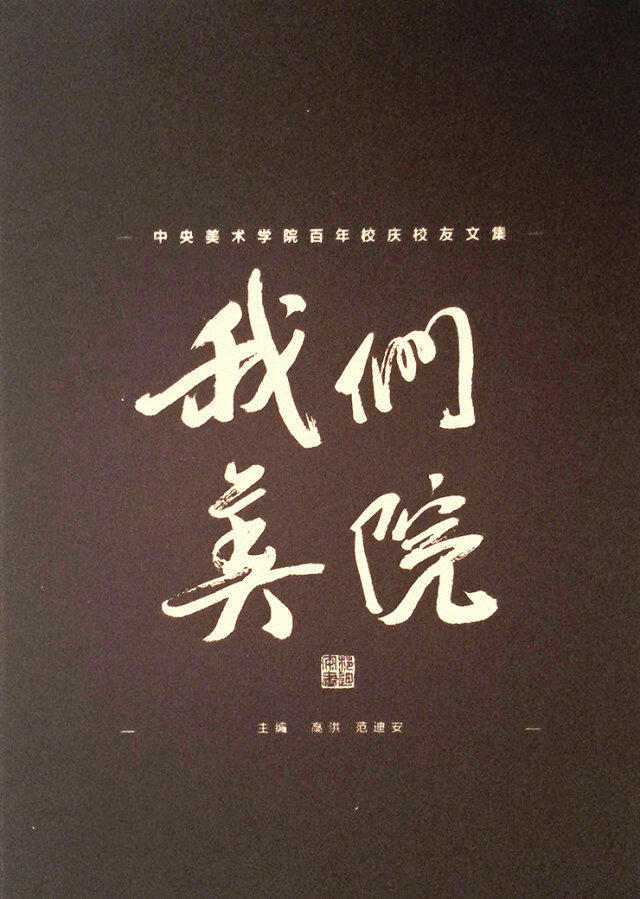 中央美术学院百年校庆校友文集
我們
美院
主编 高洪 范迪安